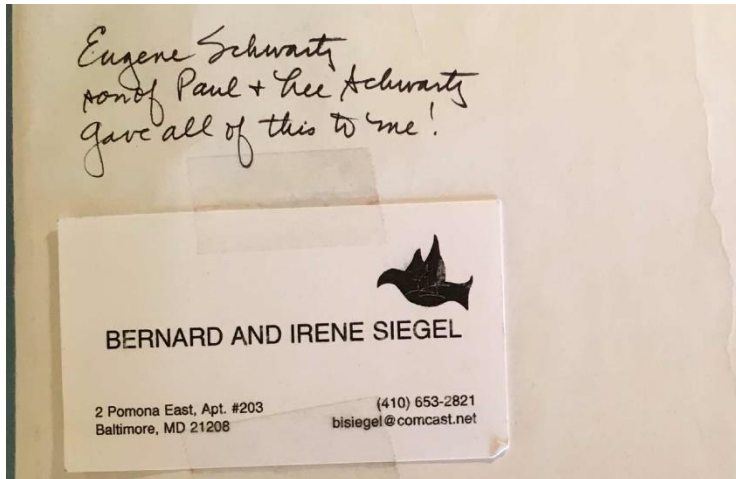 Eugene Schwartz
son of Paul + Lee Schwartz
gave all of this to me!
BERNARD AND IRENE SIEGEL
2 Pomona East, Apt. #203
Baltimore, MD 21208
(410) 653-2821
bisiegel@comcast.net